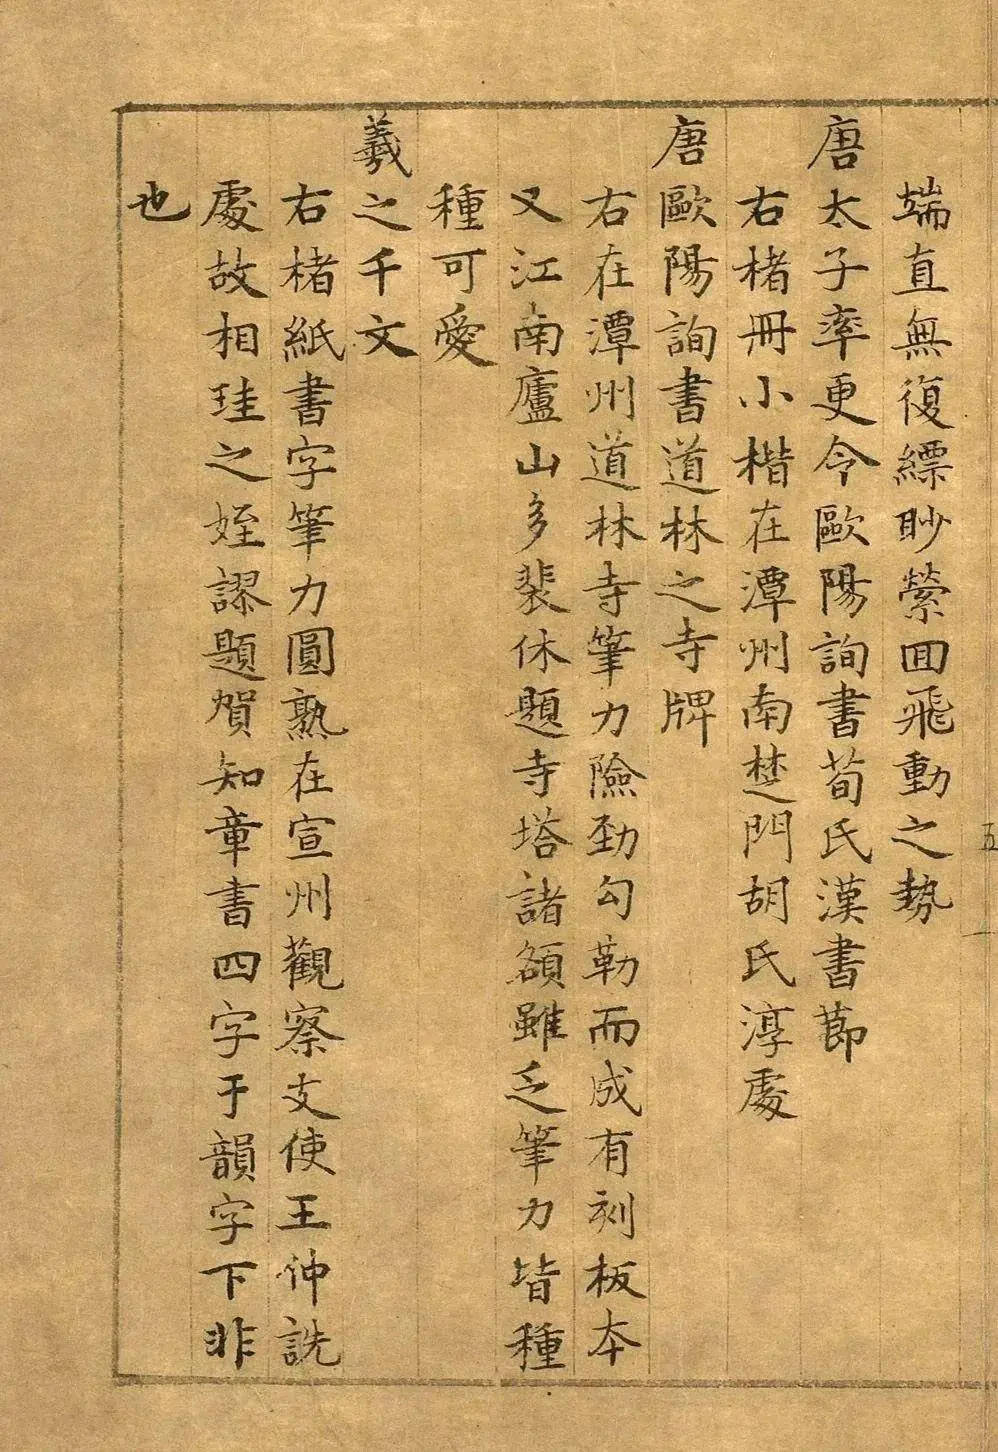 端直無復縹眇縈囬飛動之勢
唐太子率更令歐陽詢書荀氏漢書莭
右楮冊小楷在潭州南楚門胡氏淳處
唐歐陽詢書道林之寺牌
右在潭州道林寺筆力險勁勾勒而成有刻板本
又江南廬山多裴休題寺塔諸額雖乏筆力皆種
種可愛
羲之千文
右楮紙書字筆力圓熟在宣州觀察支使王仲詵
處故相珪之姪謬題賀知章書四字于韻字下非
也
五